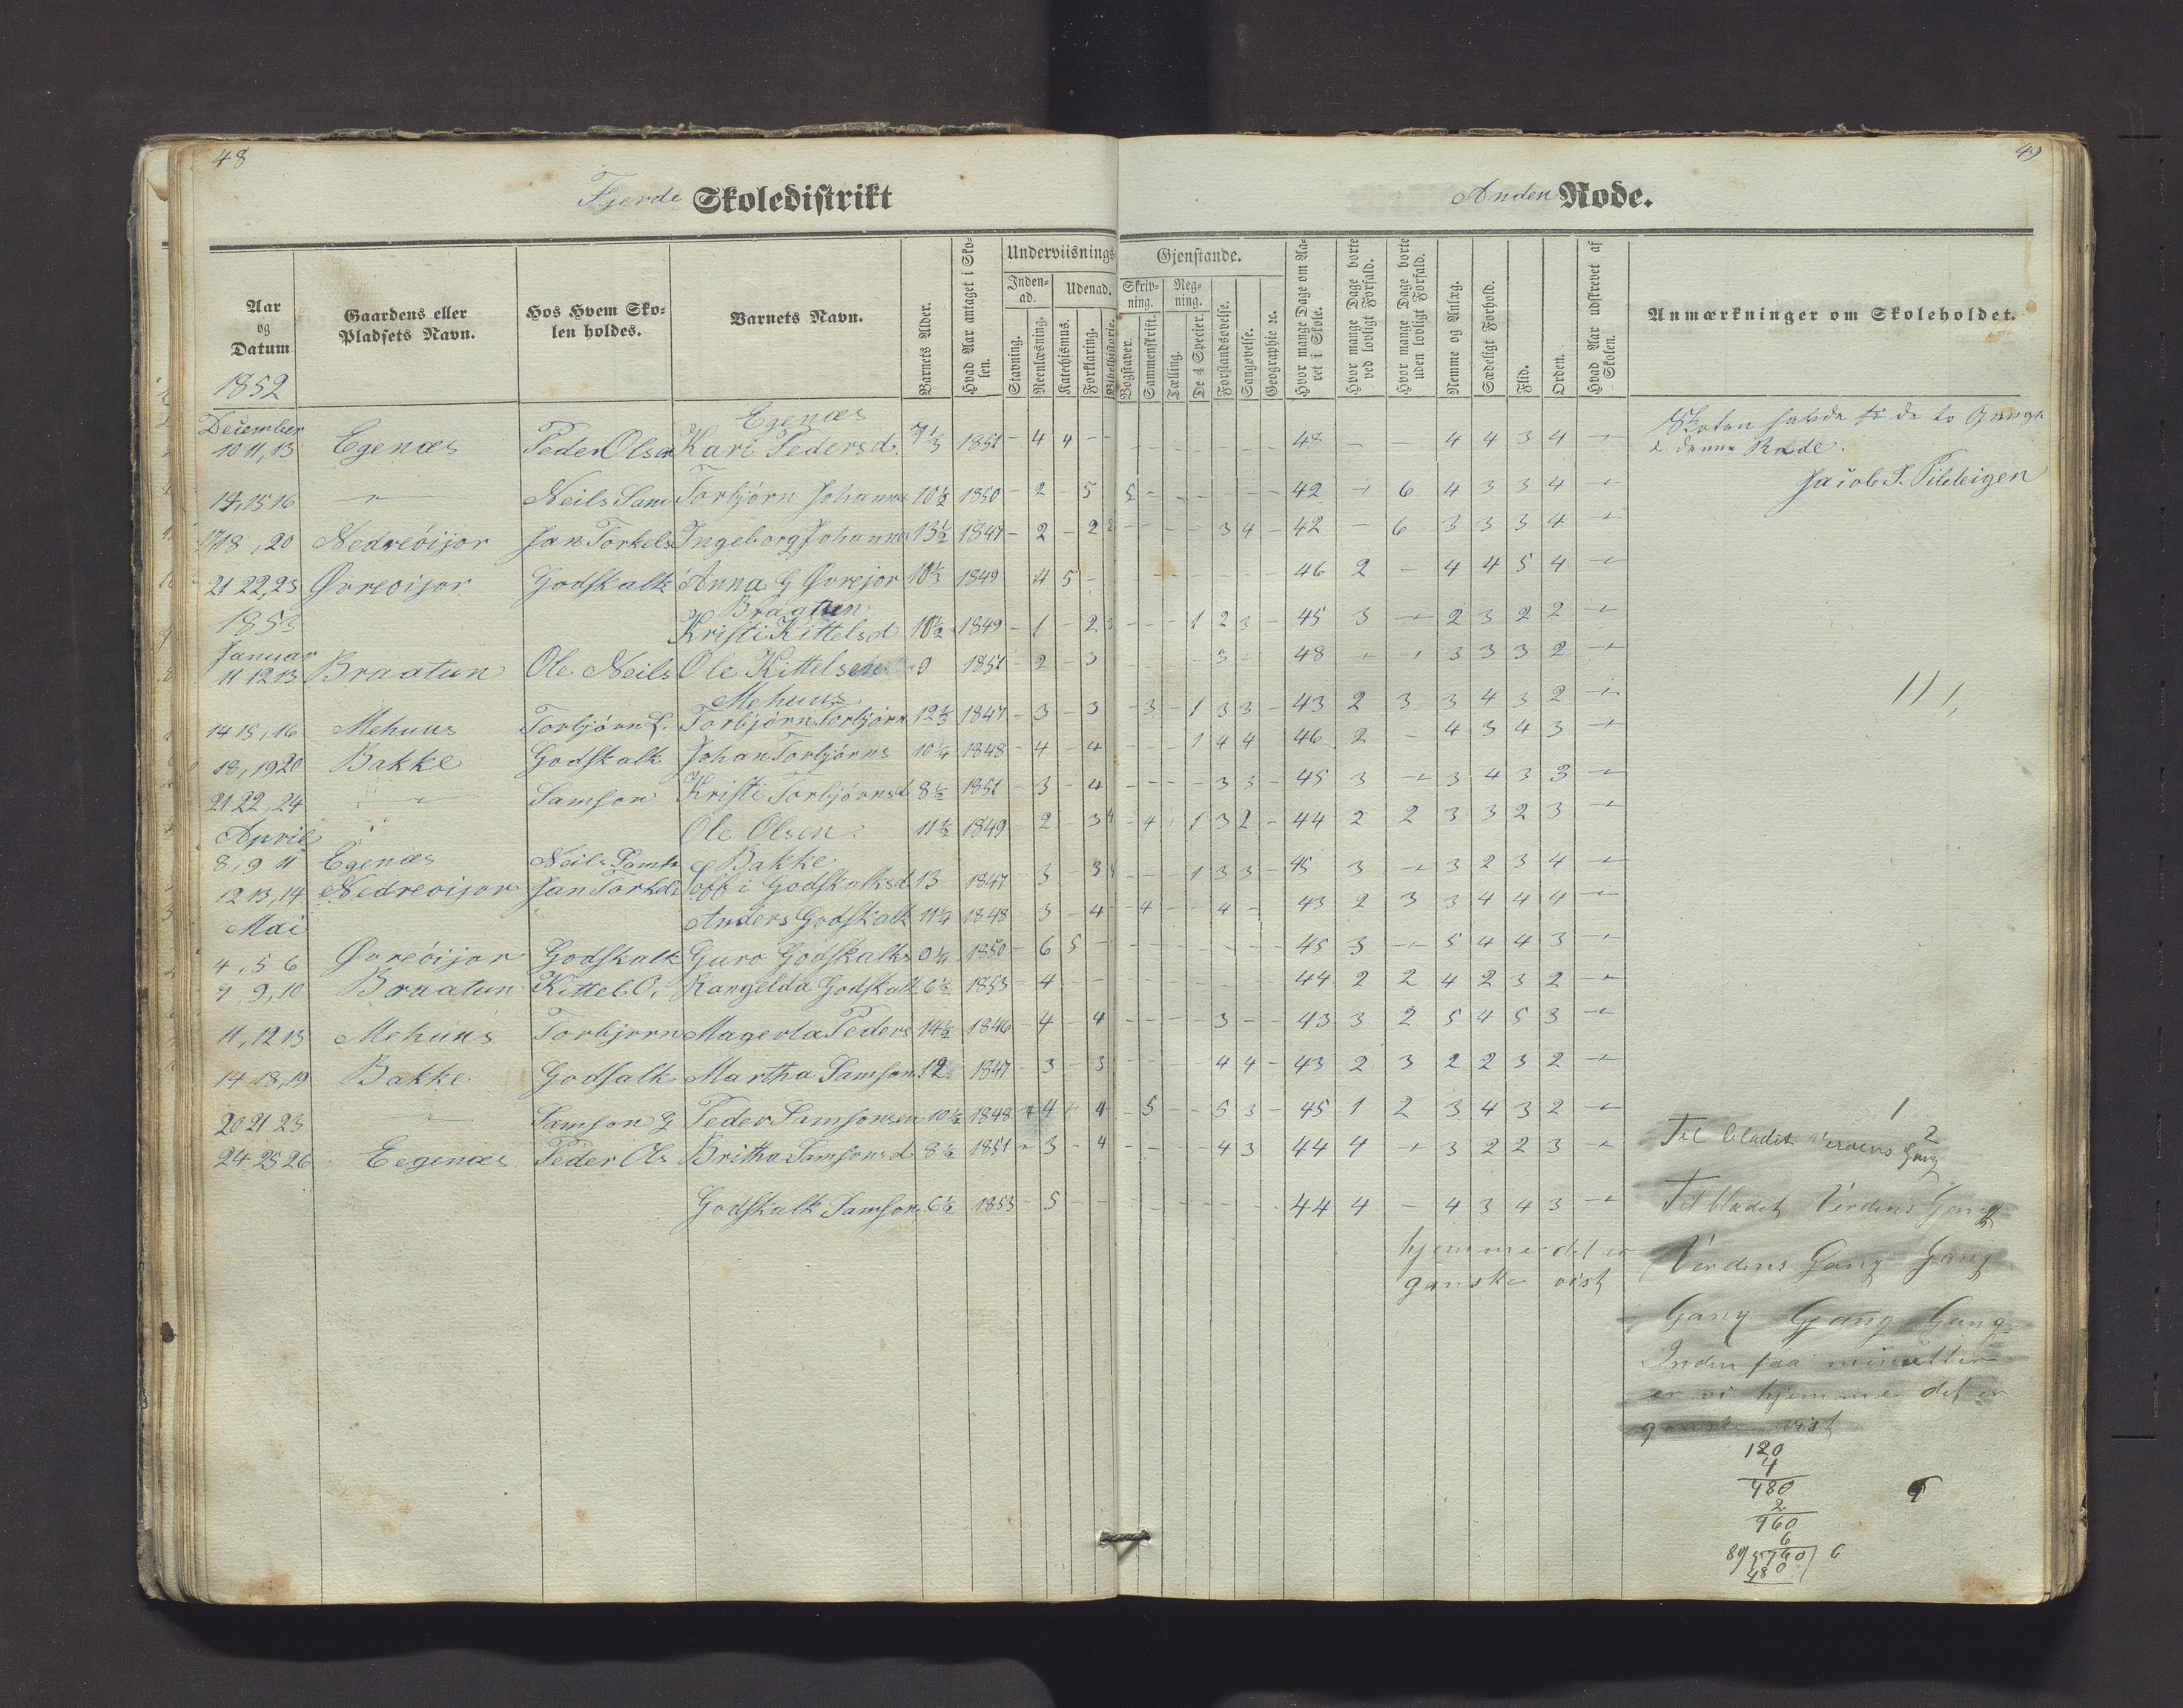 48
49
Fjerde Skoledistrikt
Anden Rode.
Aar og Datum
Gaardens eller Pladsets Navn.
Hos Hvem Skolen holdes.
Barnets Navn.
Barnets Alder.
Hvad Aar antaget i Skolen.
Underviisnings-
Gjenstande.
Indenad.
Udenad.
Skrivning.
Regning.
Stavning.
Reenlæsning.
Katechismus.
Forklaring.
Bibelhistorie.
Bogstaver.
Sammenskrift.
Tælling.
De 4 Specier.
Forstandsøvelse.
Sangøvelse.
Geographie ec.
Hvor mange Dage om Aaret i Skole.
Hvor mange Dage borte ved lovligt Forfald.
Hvor mange Dage borte uden lovligt Forfald.
Nemme og Anlæg.
Sædeligt Forhold.
Flid.
Orden.
Hvad Aar udskrevet af Skolen.
Anmærkninger om Skoleholdet.
1852
Egenæs
December
10 11, 13 Egenæs Peder Olsen Kari Pedersd. 7 1/3 1851 - 4 4 - - - - - - - - - 48 - - 4 4 3 4
14, 15 16 Neils Sam Torbjörn Johannes 10 1/2 1850 - 2 - 5 5 - - - - - - 42 6 4 3 3 4
17 18, 20 Nedreöijor Jan Torkels Ingeborg Johannes 13 1/2 1847 - 2 - 2 2 - - - - 3 4 - 42 - 6 3 3 3 4
21 22, 23 Øvreoijor Godskalk Anna G Øvrejor 10 1/3 1849 4 5 - 46 2 - 4 4 5 4
Bragtun
1853
Kristi Kittelsd 10 1/2 1849 - 1 - 2 3 - - - 1 2 3 - 45 3 2 3 2 2
Januar
11 12 13 Braatun Ole Neils Ole Kittelsen 9 1851 - 2 - 3 3 48 3 3 3 2
Mehuus
14 15, 16 Mehuus Torbjörn L. Torbjörn Torbjörn 12 1/3 1847 - 3 - 3 - 3 - 1 3 3 - 43 2 3 3 4 3 2
18, 19 20 Bakke Godskalk Johan Torbjörns 10 1/4 1848 - 4 - 4 - - - 1 4 4 46 2 - 4 3 4 3
21 22, 24 Samson Kristi Torbjörnsd 8 1/2 1851 - 3 - 4 - - - - 3 3 - 45 3 3 4 3 3
April
Ole Olsen 11 1/2 1849 2 - 3 4 - 4 1 3 2 - 44 2 2 3 3 2 3
Bakke
8, 9 11 Egenæs Neils
12 13, 14 Nedreoijor Jan Torkels Toffi Godskalksd 13 1847 3 - 3 - - - 1 3 3 - 45 3 3 2 3 4
Mai
Anders Godskalk 11 1/4 1848 5 - 4 - 4 - - 4 - 43 2 3 3 4 4 4
4, 5 6 Øvreöijor Godskalk Guro Godskalks 9 1/4 1850 - 6 5 - 45 3 5 4 4 3
7, 9, 10 Braatun Kittel O. Rangelda Godskalk 6 1/2 1853 - 4 - 44 2 2 4 2 3 2
11, 12 13 Mehuus Torbjørn Magerta Peders 14 1/2 1846 - 4 - 4 - - - - 3 - - 43 3 2 5 4 5 3
14 18, 19 Bakke Godsalk Martha Samsons 12 1847 - 3 - 3 4 4 - 43 2 3 2 2 3 2
20 21 23 Samson G Peder Samsonsen 10 1/2 1848 4 4 - 5 - - 5 3 - 45 1 2 3 4 3 2
24 25 26 Eegenæs Peder Ols Britha Samsonsd 8 1/2 1851 - 3 - 4 - - - - 4 3 44 4 3 2 2 3
Godskalk Samsons 6 1/2 1853 - 5 - - 44 4 - 4 3 4 3
de to Gange
i denne Rode.
Jacob
1
2
Til bladet Verdens Gang
Til bladet Verdens Gang
hjemme det er
ganske vist
Verdens Gang Gang
Gang Gang Gang
Inden faa minutter
er vi hjemme det er
ganske vist
120
4
480
2
960
6
5760 6
480